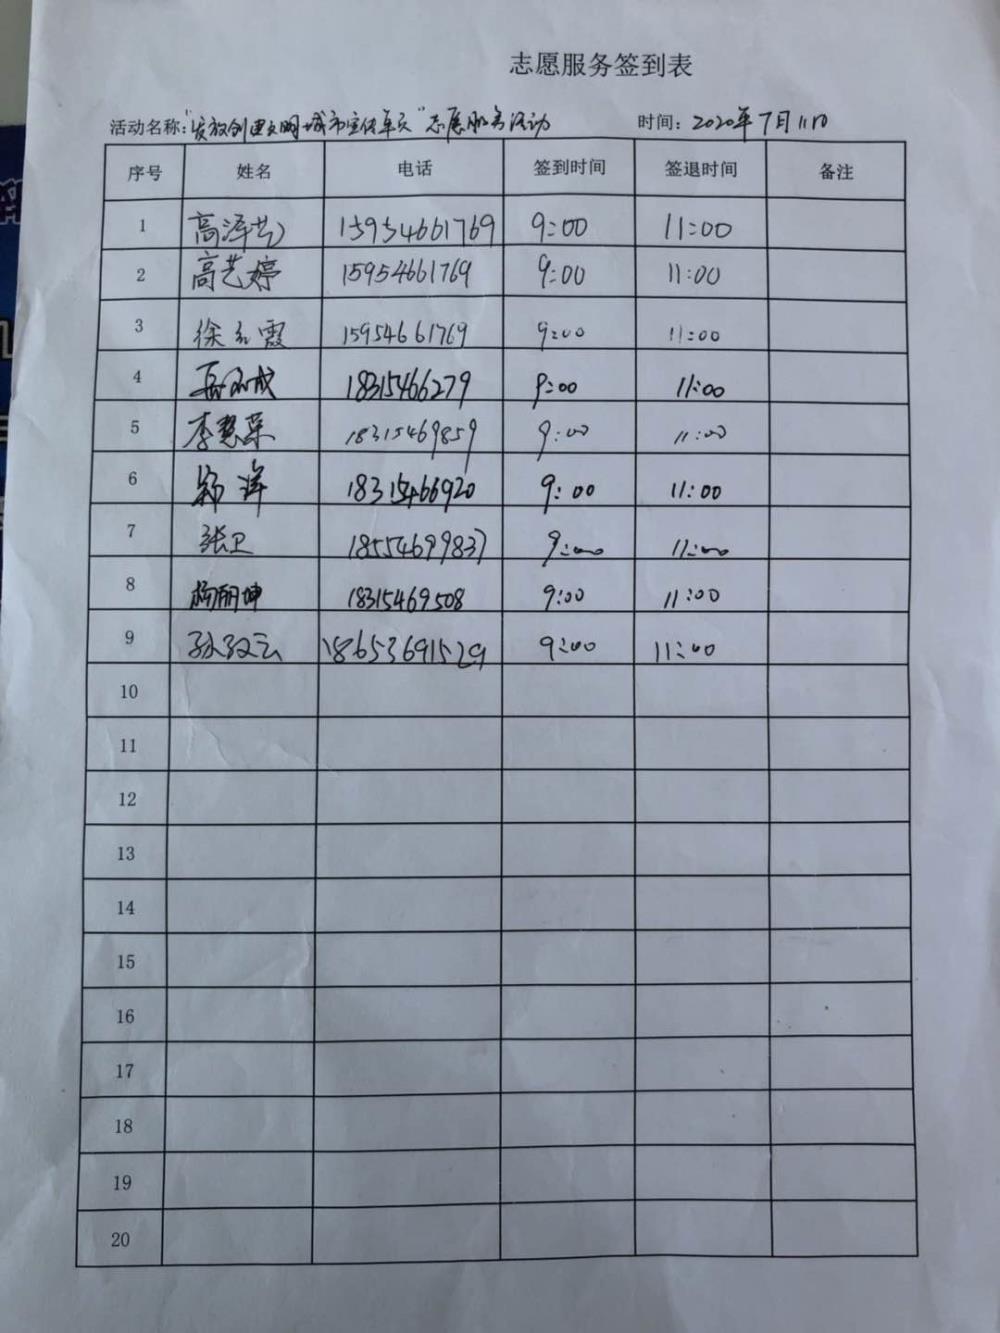 志愿服务签到表
活动名称:“发放创建文明城市宣传单页”志愿服务活动 时间: 2020年7月11日
序号 姓名 电话 签到时间 签退时间 备注
1 高泽艺 15954661769 9:00 11:00
2 高艺婷 15954661769 9:00 11:00
3 徐红霞 15954661769 9:00 11:00
4 18315466279 9:00 11:00
5 李慧荣 18315469859 9:00 11:00
6 18315466920 9:00 11:00
7 张卫 18554699837 9:00 11:00
8 杨丽坤 18315469508 9:00 11:00
9 18653691529 9:00 11:00
10
11
12
13
14
15
16
17
18
19
20